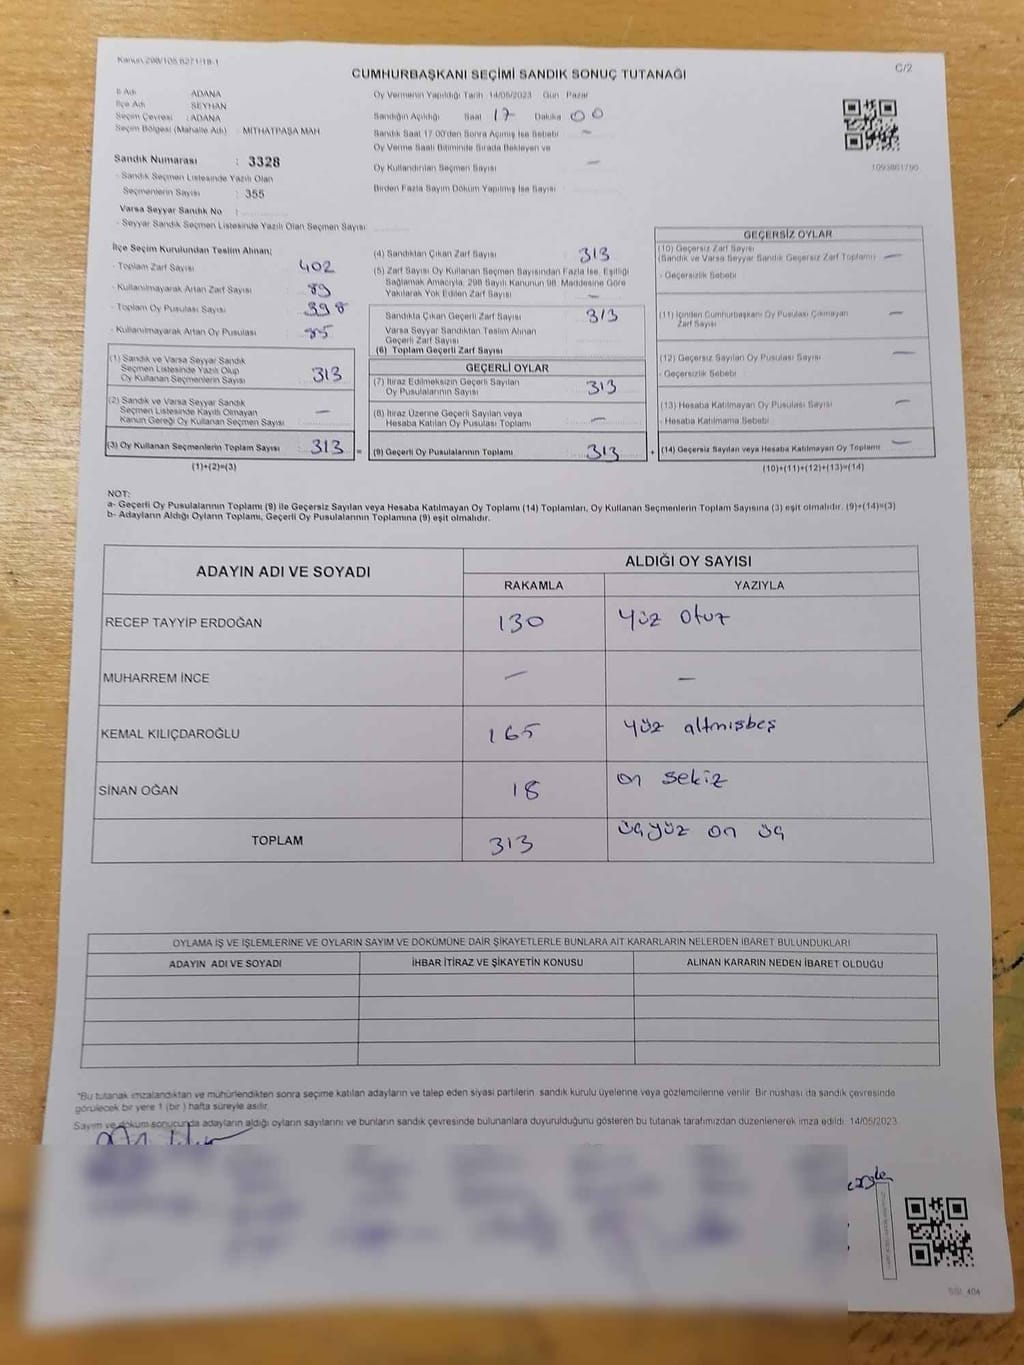 Kanun 298/105,6271/18-1
C/2
CUMHURBAŞKANI SEÇİMİ SANDIK SONUÇ TUTANAĞI
İl Adı : ADANA
İlçe Adı : SEYHAN
Seçim Çevresi : ADANA
Seçim Bölgesi (Mahalle Adı) : MİTHATPAŞA MAH.
Sandık Numarası : 3328
- Sandık Seçmen Listesinde Yazılı Olan
Seçmenlerin Sayısı : 355
Varsa Seyyar Sandık No :
- Seyyar Sandık Seçmen Listesinde Yazılı Olan Seçmen Sayısı
Oy Vermenin Yapıldığı Tarih 14/05/2023 Gün Pazar
Sandığın Açıldığı Saat 17 Dakika 00
Sandık Saat 17.00'den Sonra Açılmış İse Sebebi –
Oy Verme Saati Bitiminde Sırada Bekleyen ve
Oy Kullandırılan Seçmen Sayısı –
Birden Fazla Sayım Döküm Yapılmış İse Sayısı
1093861790
İlçe Seçim Kurulundan Teslim Alınan;
- Toplam Zarf Sayısı 402
- Kullanılmayarak Artan Zarf Sayısı 89
- Toplam Oy Pusulası Sayısı 398
- Kullanılmayarak Artan Oy Pusulası 85
(1) Sandık ve Varsa Seyyar Sandık
Seçmen Listesinde Yazılı Olup
Oy Kullanan Seçmenlerin Sayısı 313
(2) Sandık ve Varsa Seyyar Sandık
Seçmen Listesinde Kayıtlı Olmayan
Kanun Gereği Oy Kullanan Seçmen Sayısı –
(3) Oy Kullanan Seçmenlerin Toplam Sayısı 313 =
(1)+(2)=(3)
(4) Sandıktan Çıkan Zarf Sayısı 313
(5) Zarf Sayısı Oy Kullanan Seçmen Sayısından Fazla İse, Eşitliği
Sağlamak Amacıyla, 298 Sayılı Kanunun 98. Maddesine Göre
Yakılarak Yok Edilen Zarf Sayısı –
Sandıkta Çıkan Geçerli Zarf Sayısı 313
Varsa Seyyar Sandıktan Teslim Alınan
Geçerli Zarf Sayısı
(6) Toplam Geçerli Zarf Sayısı
GEÇERLİ OYLAR
(7) İtiraz Edilmeksizin Geçerli Sayılan
Oy Pusulalarının Sayısı 313
(8) İtiraz Üzerine Geçerli Sayılan veya
Hesaba Katılan Oy Pusulası Toplamı –
(9) Geçerli Oy Pusulalarının Toplamı 313 +
GEÇERSİZ OYLAR
(10) Geçersiz Zarf Sayısı
(Sandık ve Varsa Seyyar Sandık Geçersiz Zarf Toplamı) –
- Geçersizlik Sebebi
(11) İçinden Cumhurbaşkanı Oy Pusulası Çıkmayan
Zarf Sayısı –
(12) Geçersiz Sayılan Oy Pusulası Sayısı –
- Geçersizlik Sebebi
(13) Hesaba Katılmayan Oy Pusulası Sayısı –
- Hesaba Katılmama Sebebi
(14) Geçersiz Sayılan veya Hesaba Katılmayan Oy Toplamı –
(10)+(11)+(12)+(13)=(14)
NOT:
a- Geçerli Oy Pusulalarının Toplamı (9) ile Geçersiz Sayılan veya Hesaba Katılmayan Oy Toplamı (14) Toplamları, Oy Kullanan Seçmenlerin Toplam Sayısına (3) eşit olmalıdır. (9)+(14)=(3)
b- Adayların Aldığı Oyların Toplamı, Geçerli Oy Pusulalarının Toplamına (9) eşit olmalıdır.
ADAYIN ADI VE SOYADI ALDIĞI OY SAYISI
RAKAMLA YAZIYLA
RECEP TAYYİP ERDOĞAN 130 yüz otuz
MUHARREM İNCE – –
KEMAL KILIÇDAROĞLU 165 yüz altmışbeş
SİNAN OĞAN 18 on sekiz
TOPLAM 313 üçyüz on üç
OYLAMA İŞ VE İŞLEMLERİNE VE OYLARIN SAYIM VE DÖKÜMÜNE DAİR ŞİKAYETLERLE BUNLARA AİT KARARLARIN NELERDEN İBARET BULUNDUKLARI
ADAYIN ADI VE SOYADI İHBAR İTİRAZ VE ŞİKAYETİN KONUSU ALINAN KARARIN NEDEN İBARET OLDUĞU
*Bu tutanak imzalandıktan ve mühürlendikten sonra seçime katılan adayların ve talep eden siyasi partilerin sandık kurulu üyelerine veya gözlemcilerine verilir. Bir nüshası da sandık çevresinde
görülecek bir yere 1 (bir ) hafta süreyle asılır.
Sayım ve döküm sonucunda adayların aldığı oyların sayılarını ve bunların sandık çevresinde bulunanlara duyurulduğunu gösteren bu tutanak tarafımızdan düzenlenerek imza edildi. 14/05/2023
404